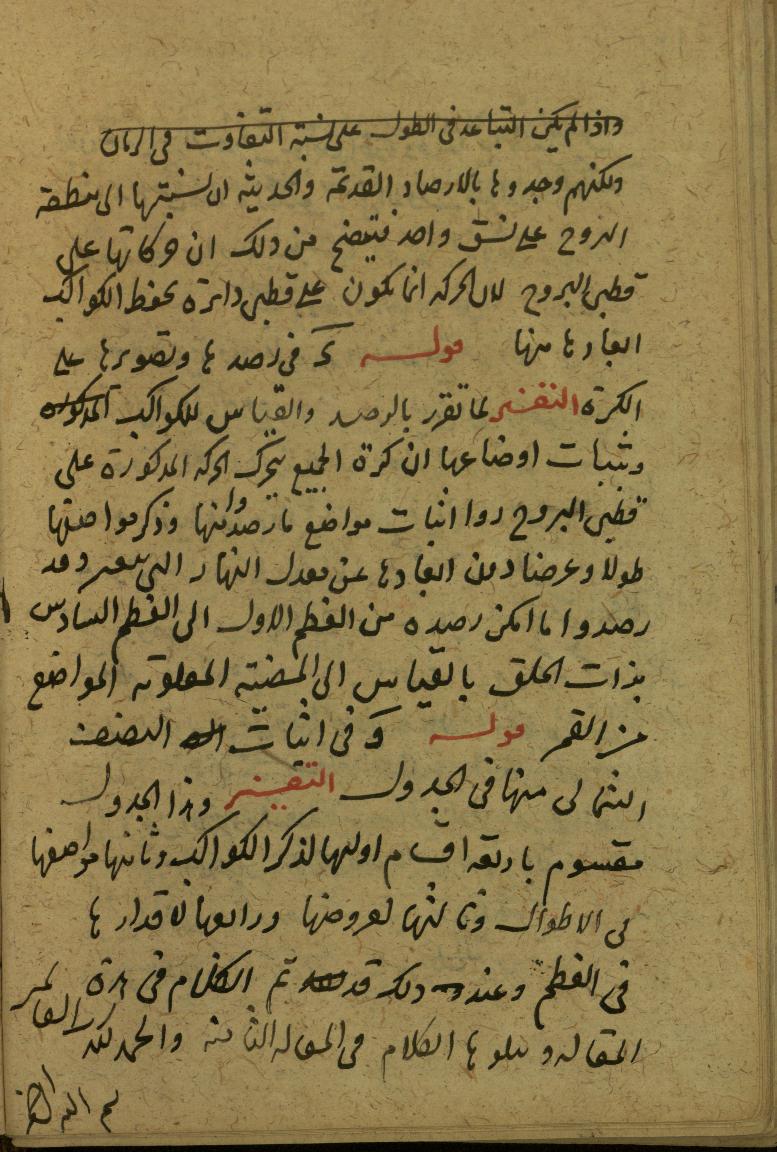 واذا لم يكن التباعد فى الطول على نسبة التفاوت فى الزمان
ولكنهم وجدوها بالارصاد القديمة والحديثة ان نسبتها الى منطقة
البروج على نسق واحد فيتضح من ذلك ان حركاتها على
قطبى البروج لان الحركه انما يكون على قطبى دائرة يحفظ الكواكب
ابعادها منها قوله فى رصدها وتصويرها على
الكرة التفسير لما تقرر بالرصد والقياس للكواكب المذكوره
وثبات اوضاعها ان كرة الجميع يتحرك الحركه المذكورة على
قطبى البروج اثبات مواضع ما رصدوا منها وذكر مواضعها
طولا وعرضا دون ابعادها عن معدل النهار التى وقد
رصدوا ما امكن رصده من العظم الاول الى العظم السادس
بذات الحلق بالقياس الى المضيئة المعلومه المواضع
من القمر قوله و فى اثبات النصف
الشمالى منها فى الجدول التفسير وهذا الجدول
مقسوم باربعه اقسام اولها لذكر الكواكب وثانيها مواضعها
فى الاطوال وثالثها لعروضها ورابعها لاقدارها
فى العظم وعند ذلك قد تم الكلام فى هذه
المقاله ويتلوها الكلام فى المقاله الثامنه والحمد لله رب العالمين
بسم الله الرحمن